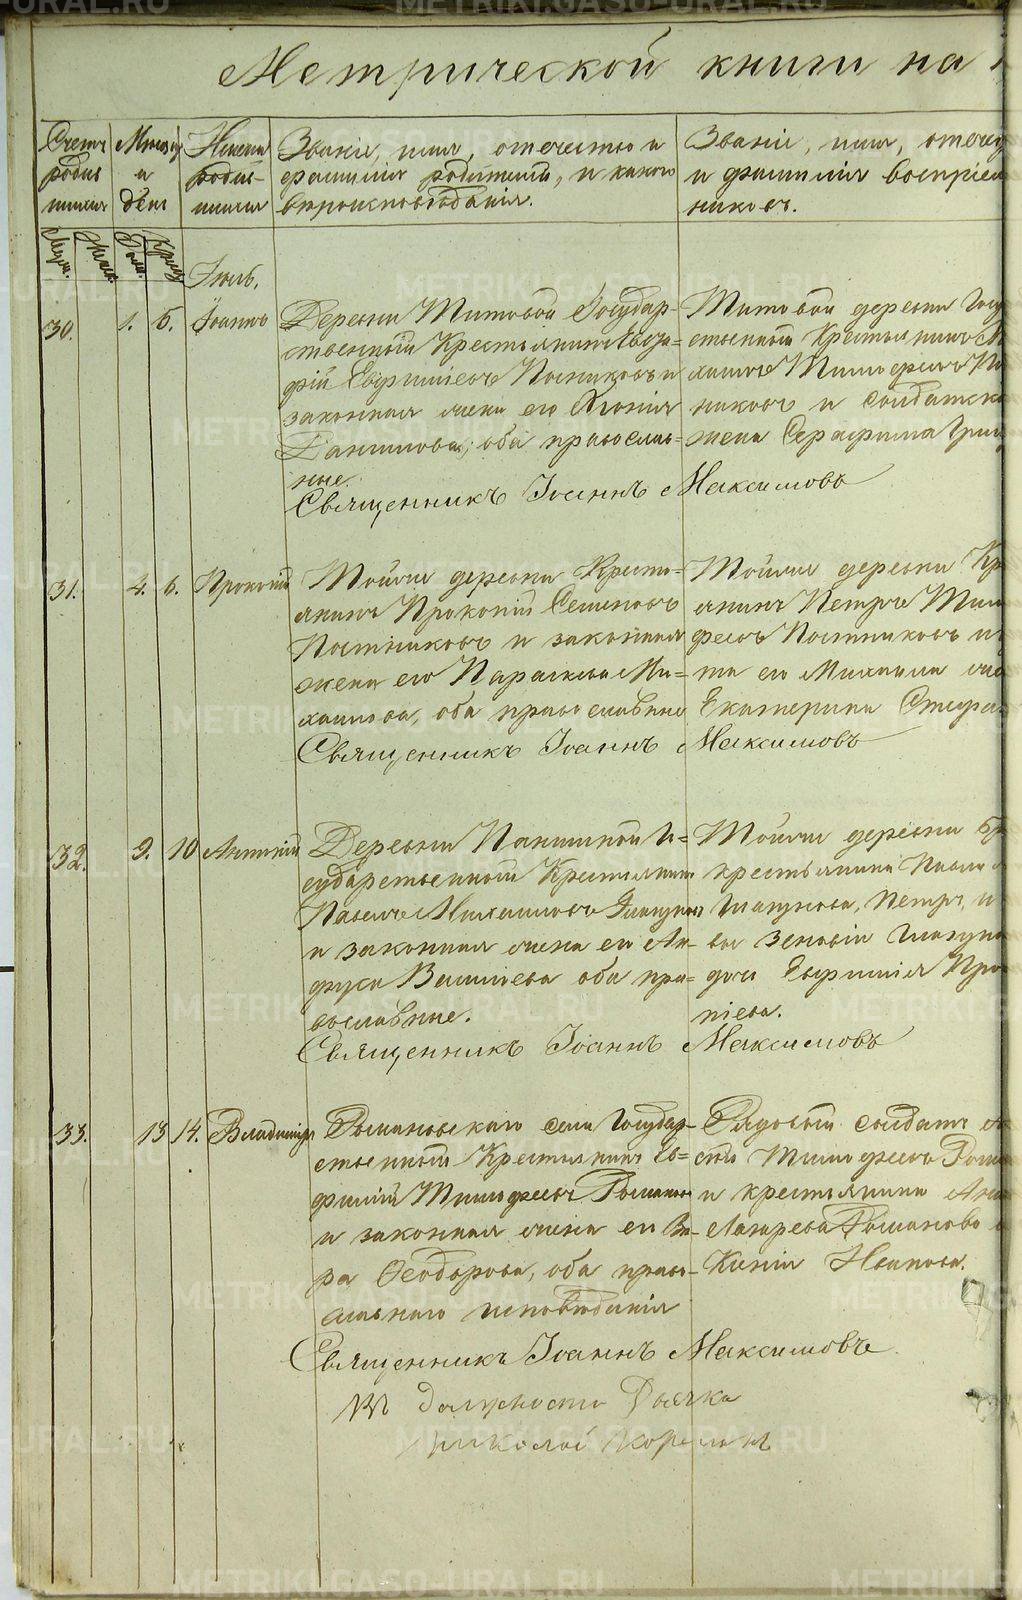 Метрической книги на
Счетъ родив шихся
Месяцъ и день
Имена родив- шихся
Званіе, имя, отечество и фамилія родителей, и какого вѣроисповѣданія.
Званіе, имя, отеч и фамилія воспріем никовъ.
Муж. Жен. Рожд. Крещ.
Іюль.
30. 1. 6. Іоаннъ
Деревни Титовой Государ-
ственный Крестьянинъ
Евфиміевъ Постниковъ и
законная жена его
Даниловы, оба православ-
ные.
Титовой деревни Госу
ственный Крестьянинъ
Тимофеевъ
никовъ и солдатск
жена Серафима
Священникъ Іоаннъ Максимовъ
31. 4. 6. Прокопій
Тойже деревни Кресть-
янинъ Прокопій Семеновъ
Постниковъ и законная
жена его Параскева Ми-
хаилова, оба православные
Тойже деревни Кр
янинъ Петръ Тим
феевъ Постниковъ и
та его Михаила
Екатерина Стефа
Священникъ Іоаннъ Максимовъ
32. 9. 10 Антоній
Деревни Паниной Го-
сударственный Крестьянинъ
Павелъ Михаиловъ Глазуновъ
и законная жена его Ан-
фуса Василіева оба пра-
вославные.
Тойже деревни
крестьянина Павла
Глазунова, Петръ, и
Зеновіи Глазуно
дочь Евфимія Про
піева.
Священникъ Іоаннъ Максимовъ
33. 13 14. Владиміръ
Романовскаго села Государ-
ственный Крестьянинъ Ев-
фимій Тимофеевъ Романовъ
и законная жена его Вѣ-
ра Ѳеодорова, оба право-
славнаго исповѣданія
Рядовый солдатъ
Тимофеевъ Рома
и крестьянина
Лазарева Романова
Ксенія Иванова.
Священникъ Іоаннъ Максимовъ
Въ должности Дьячка
Николай
METRIKI.GASO-URAL.RU